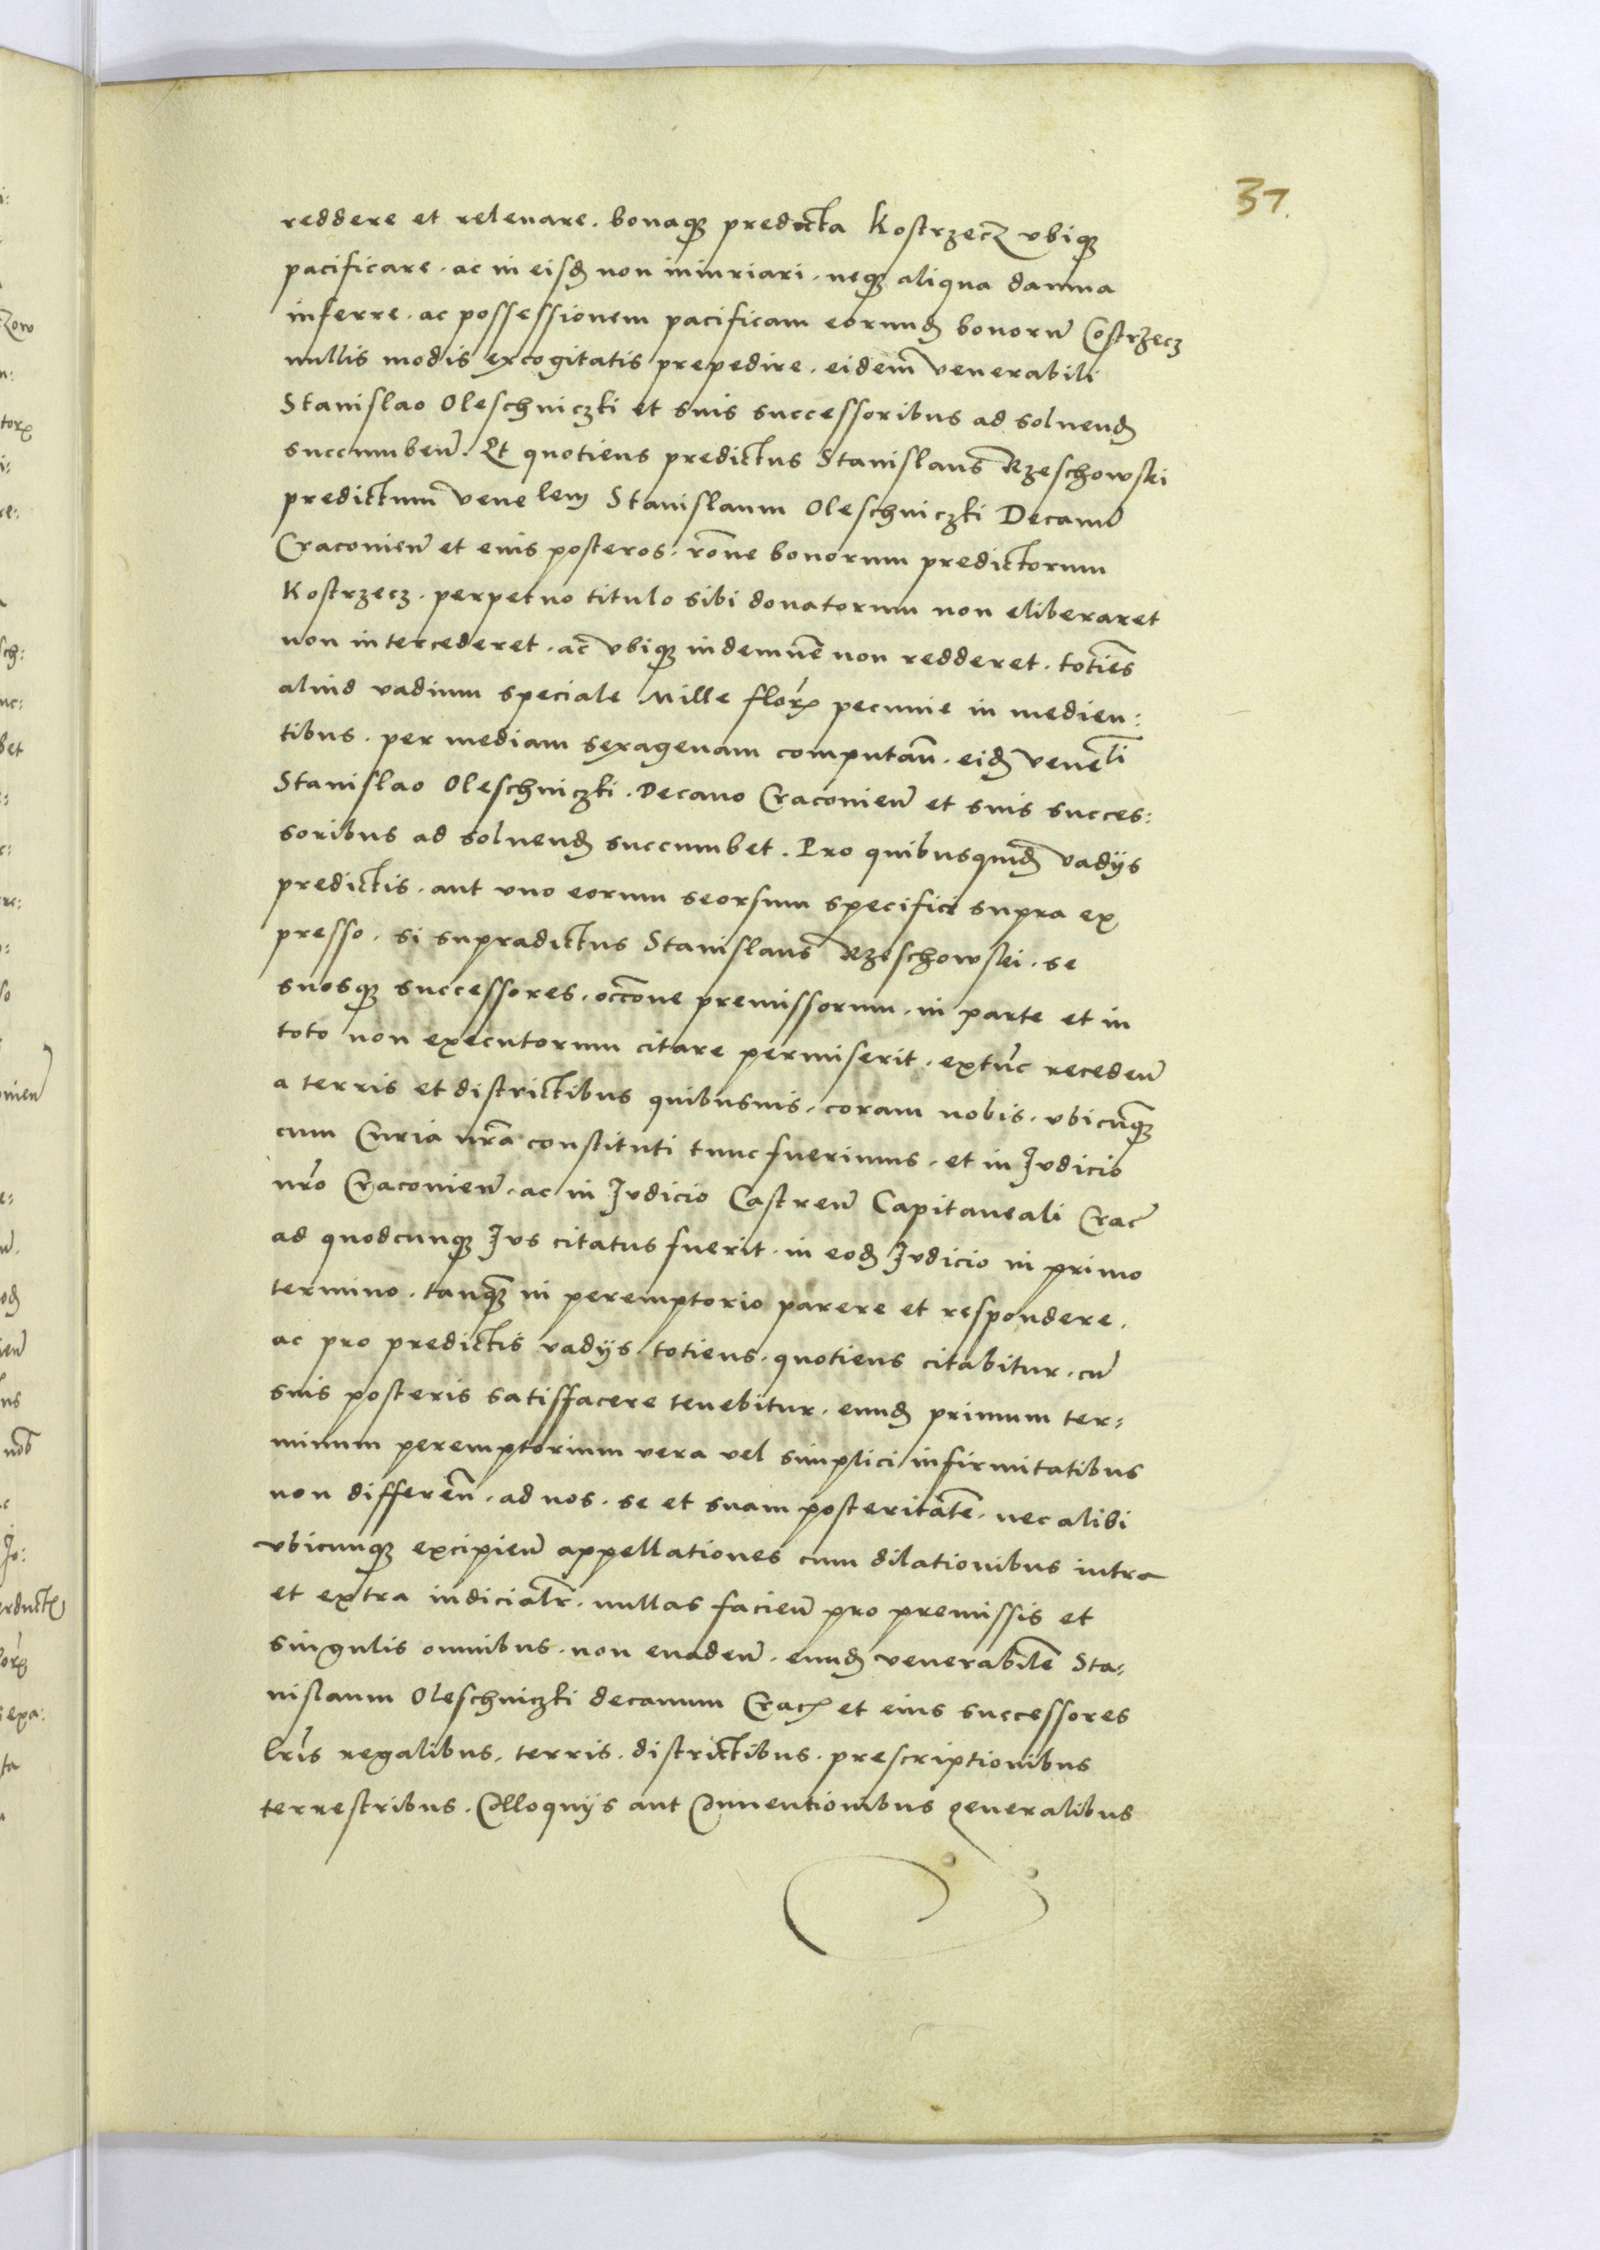 37.
reddere et releuare. bonaqꝫ predicta Kostrzecz vbiqꝫ
pacificare. ac in eisdꝫ non iniuriari. neqꝫ aliqua damna
inferre. ac possessionem pacificam eorundꝫ bonorū Costrzecz
nullis modis excogitatis prepedire. eidem venerabili
Stanislao Oleschniczki et suis successoribus ad soluendꝫ
succumben̄. Et quotiens predictus Stanislaus Rzeschowski
predictum venelem Stanislaum Oleschniczki Decanū
Cracovien̄ et eius posteros. rōne bonorum predictorum
Kostrzecz. perpetuo titulo sibi donatorum non eliberaret
non intercederet. ac vbiqꝫ indemnē non redderet. totiēs
aliud vadium speciale Mille florꝫ pecunie in medien:
tibus. per mediam sexagenam computan̄. eidꝫ veneli
Stanislao Oleschniczki. Decano Cracouien̄ et suis succes:
soribus ad soluendꝫ succumbet. Pro quibusquidꝫ vadijs
predictis. aut vno eorum seorsum specifice supra ex
presso. si supradictus Stanislaus Rzeschowski. se
suosqꝫ successores. occōne premissorum. in parte et in
toto non executorum citare permiserit. extūc receden̄
a terris et districtibus quibusuis. coram nobis. vbicunqꝫ
cum Curia nrā constituti tunc fuerimus. et in Iudicio
nrō Cracouien̄. ac in Iudicio Castren̄ Capitaneali Crac̄
ad quodcunqꝫ Ius citatus fuerit. in eodꝫ Iudicio in primo
termino. tanqꝫ in peremptorio parere et respondere.
ac pro predictis vadijs. totiens. quotiens citabitur. cū
suis posteris satisfacere tenebitur. eundꝫ primum ter:
minum peremptorium vera vel simplici infirmitatibus
non differen̄. ad nos. se et suam posteritatē. nec alibi
vbicunqꝫ excipien̄ appellationes cum dilationibus intra
et extra iudicialr̄. nullas facien̄ pro premissis et
singulis omnibus. non euaden̄. eundꝫ venerabilē Sta:
nislaum Oleschniczki decanum Cracꝫ et eius successores
lrīs regalibus. terris. districtibus. prescriptionibus
terrestribus. Colloquijs aut Conuentionibus generalibus